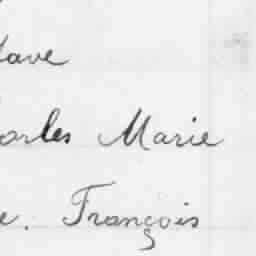 lave
arles Marie
e. François